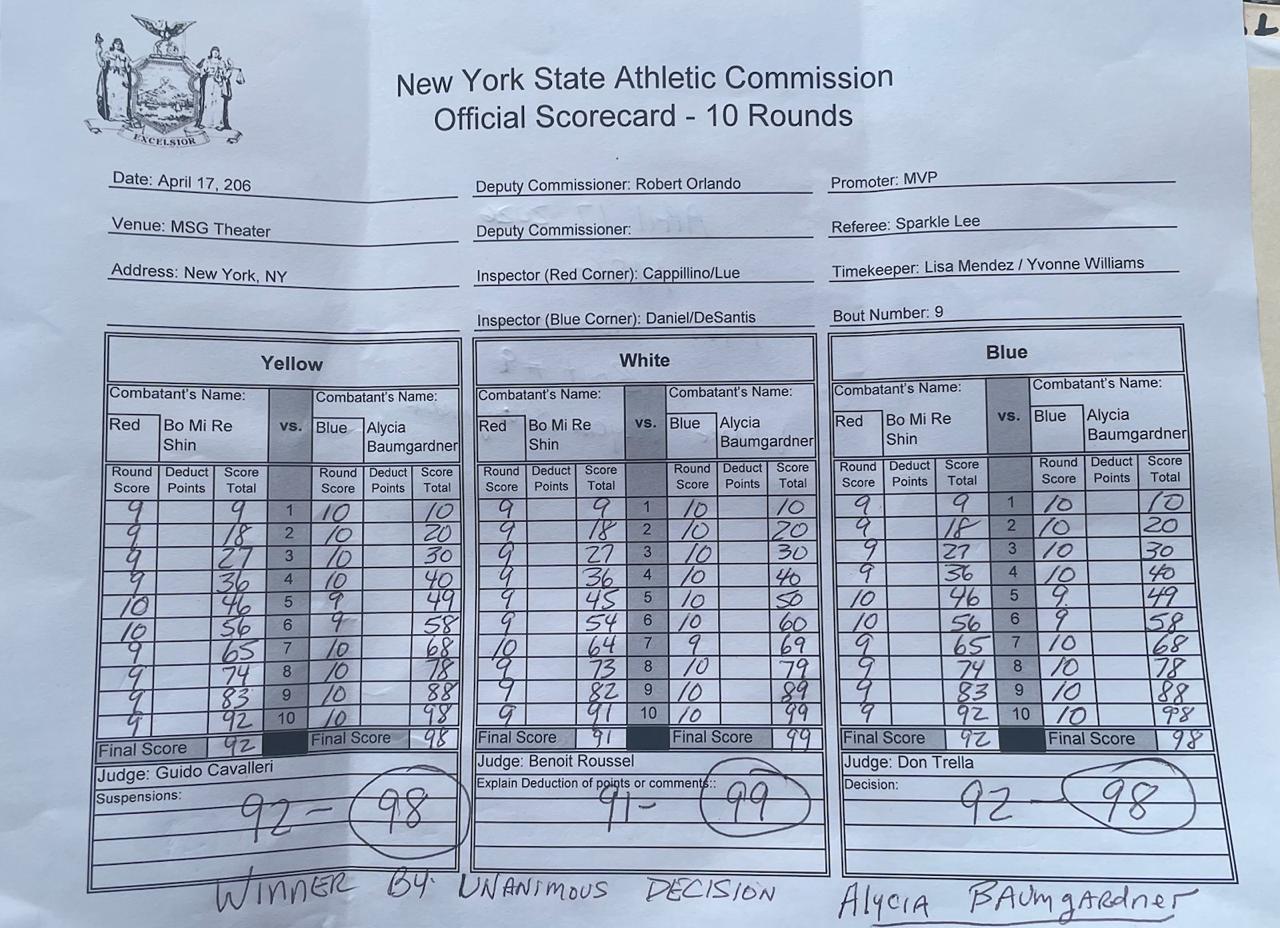 EXCELSIOR
New York State Athletic Commission
Official Scorecard - 10 Rounds
Date: April 17, 206 Deputy Commissioner: Robert Orlando Promoter: MVP
Venue: MSG Theater Deputy Commissioner: Referee: Sparkle Lee
Address: New York, NY Inspector (Red Corner): Cappillino/Lue Timekeeper: Lisa Mendez / Yvonne Williams
Inspector (Blue Corner): Daniel/DeSantis Bout Number: 9
Yellow White Blue
Combatant's Name: Combatant's Name: Combatant's Name: Combatant's Name: Combatant's Name: Combatant's Name:
Red Bo Mi Re vs. Blue Alycia Red Bo Mi Re vs. Blue Alycia Red Bo Mi Re vs. Blue Alycia
Shin Baumgardner Shin Baumgardner Shin Baumgardner
Round Deduct Score Round Deduct Score Round Deduct Score Round Deduct Score Round Deduct Score Round Deduct Score
Score Points Total Score Points Total Score Points Total Score Points Total Score Points Total Score Points Total
9 9 1 10 10 9 9 1 10 10 9 9 1 10 10
9 18 2 10 20 9 18 2 10 20 9 18 2 10 20
9 27 3 10 30 9 27 3 10 30 9 27 3 10 30
9 36 4 10 40 9 36 4 10 40 9 36 4 10 40
10 46 5 9 49 9 45 5 10 50 10 46 5 9 49
10 56 6 9 58 9 54 6 10 60 10 56 6 9 58
9 65 7 10 68 10 64 7 9 69 9 65 7 10 68
9 74 8 10 78 9 73 8 10 79 9 74 8 10 78
9 83 9 10 88 9 82 9 10 89 9 83 9 10 88
9 92 10 10 98 9 91 10 10 99 9 92 10 10 98
Final Score 92 Final Score 98 Final Score 91 Final Score 99 Final Score 92 Final Score 98
Judge: Guido Cavalleri Judge: Benoit Roussel Judge: Don Trella
Suspensions: Explain Deduction of points or comments:: Decision:
92 - 98 91 - 99 92 - 98
WINNER BY: UNANIMOUS DECISION Alycia BAUmgARDner